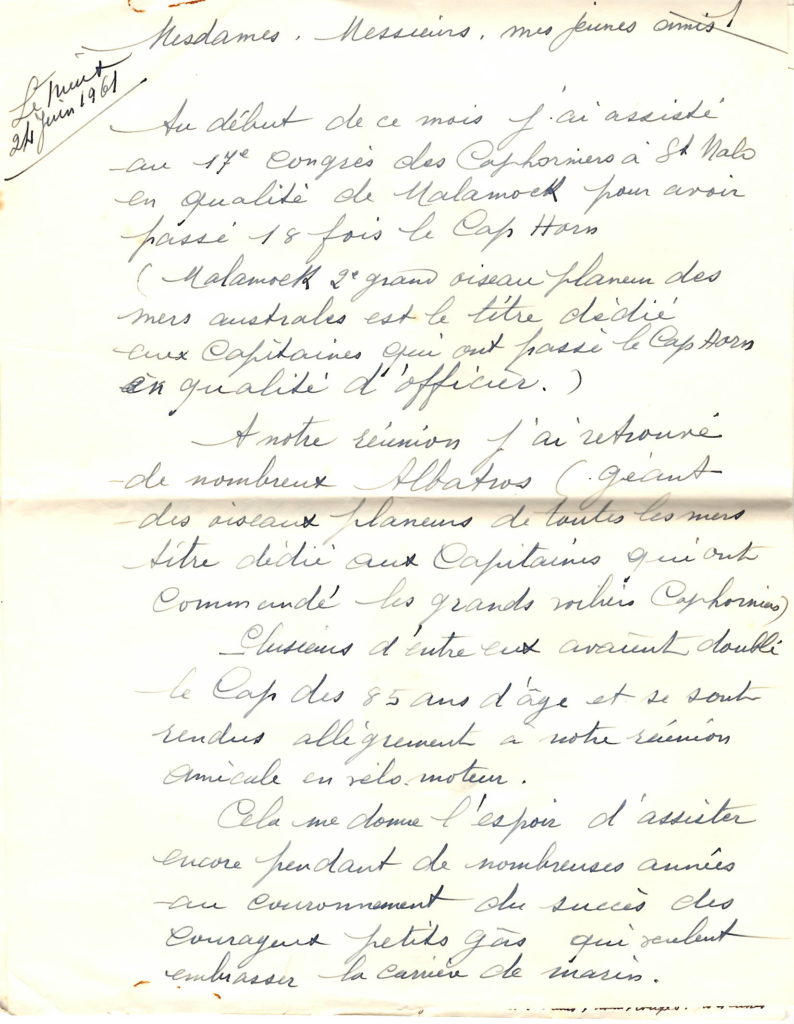 Mesdames. Messieurs. mes jeunes amis!
24 Juin 1961
Au début de ce mois j'ai assisté
au 17e Congrès des Caphorniers à St Malo
en qualité de Malamock pour avoir
passé 18 fois le Cap Horn
(Malamock 2e grand oiseau planeur des
mers australes est le titre dédié
aux Capitaines qui ont passé le Cap Horn
en qualité d'officier.)
A notre réunion j'ai retrouvé
de nombreux Albatros (Géant
des oiseaux planeurs de toutes les mers
titre dédié aux Capitaines qui ont
commandé les grands voiliers Caphorniers)
Plusieurs d'entre eux avaient doublé
le Cap des 85 ans d'âge et se sont
rendus allègrement à notre réunion
amicale en vélo-moteur.
Cela me donne l'espoir d'assister
encore pendant de nombreuses années
au couronnement du succès des
courageux petits gâs qui veulent
embrasser la carrière de marin.